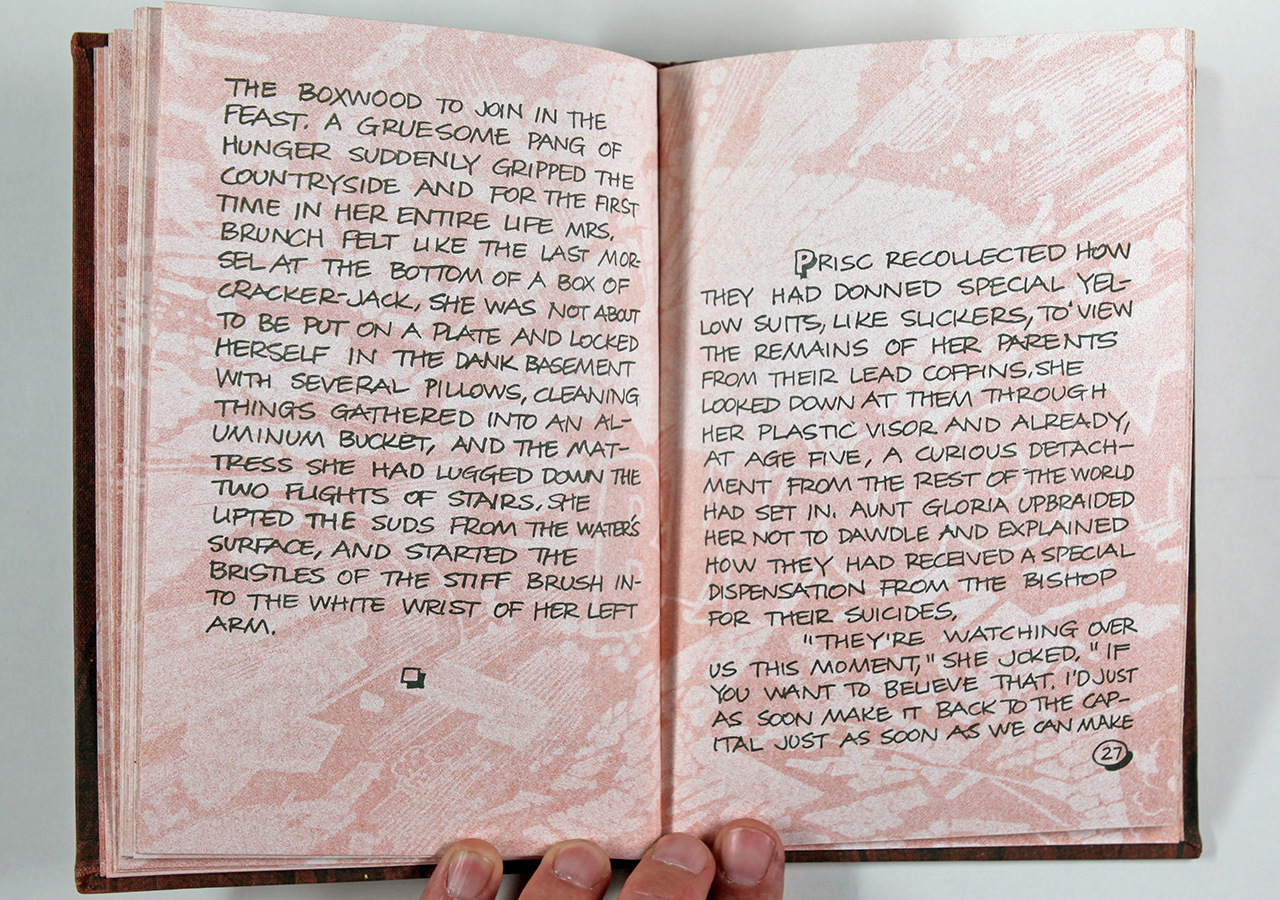 THE BOXWOOD TO JOIN IN THE
FEAST. A GRUESOME PANG OF
HUNGER SUDDENLY GRIPPED THE
COUNTRYSIDE AND FOR THE FIRST
TIME IN HER ENTIRE LIFE MRS.
BRUNCH FELT LIKE THE LAST MOR-
SEL AT THE BOTTOM OF A BOX OF
CRACKER-JACK. SHE WAS NOT ABOUT
TO BE PUT ON A PLATE AND LOCKED
HERSELF IN THE DANK BASEMENT
WITH SEVERAL PILLOWS, CLEANING
THINGS GATHERED INTO AN AL-
UMINUM BUCKET, AND THE MAT-
TRESS SHE HAD LUGGED DOWN THE
TWO FLIGHTS OF STAIRS. SHE
LIFTED THE SUDS FROM THE WATER'S
SURFACE, AND STARTED THE
BRISTLES OF THE STIFF BRUSH IN-
TO THE WHITE WRIST OF HER LEFT
ARM.
PRISC RECOLLECTED HOW
THEY HAD DONNED SPECIAL YEL-
LOW SUITS, LIKE SLICKERS, TO VIEW
THE REMAINS OF HER PARENTS
FROM THEIR LEAD COFFINS. SHE
LOOKED DOWN AT THEM THROUGH
HER PLASTIC VISOR AND ALREADY,
AT AGE FIVE, A CURIOUS DETACH-
MENT FROM THE REST OF THE WORLD
HAD SET IN. AUNT GLORIA UPBRAIDED
HER NOT TO DAWDLE AND EXPLAINED
HOW THEY HAD RECEIVED A SPECIAL
DISPENSATION FROM THE BISHOP
FOR THEIR SUICIDES.
"THEY'RE WATCHING OVER
US THIS MOMENT," SHE JOKED. "IF
YOU WANT TO BELIEVE THAT. I'D JUST
AS SOON MAKE IT BACK TO THE CAP-
ITAL JUST AS SOON AS WE CAN MAKE
27